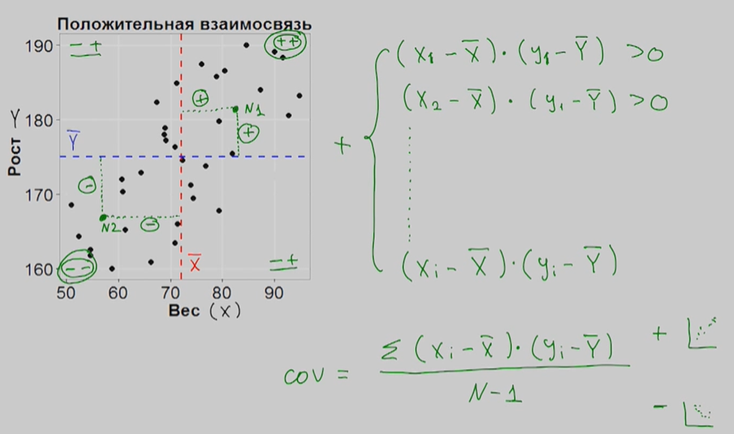 Положительная взаимосвязь
190
180
170
160
Y
Рост
50
60
70
80
90
Вес (X)
- +
++
+
N1
+
Y̅
-
N2
-
--
X̅
- +
+
(x₁ - X̅) · (y₁ - Y̅) > 0
(x₂ - X̅) · (yᵢ - Y̅) > 0
(xᵢ - X̅) · (yᵢ - Y̅)
cov = Σ (xᵢ - X̅) · (yᵢ - Y̅)
N - 1
+
-